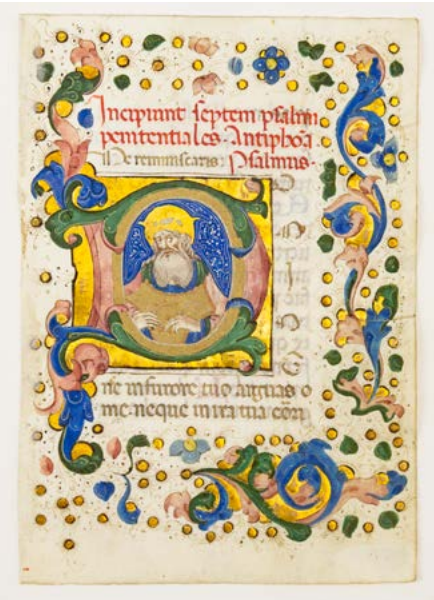 Incipiunt septem psalmi
penitentiales. Antiphoã.
Ne reminiscaris. Psalmus.
D
ne in furore tuo arguas
me neque in ira tua